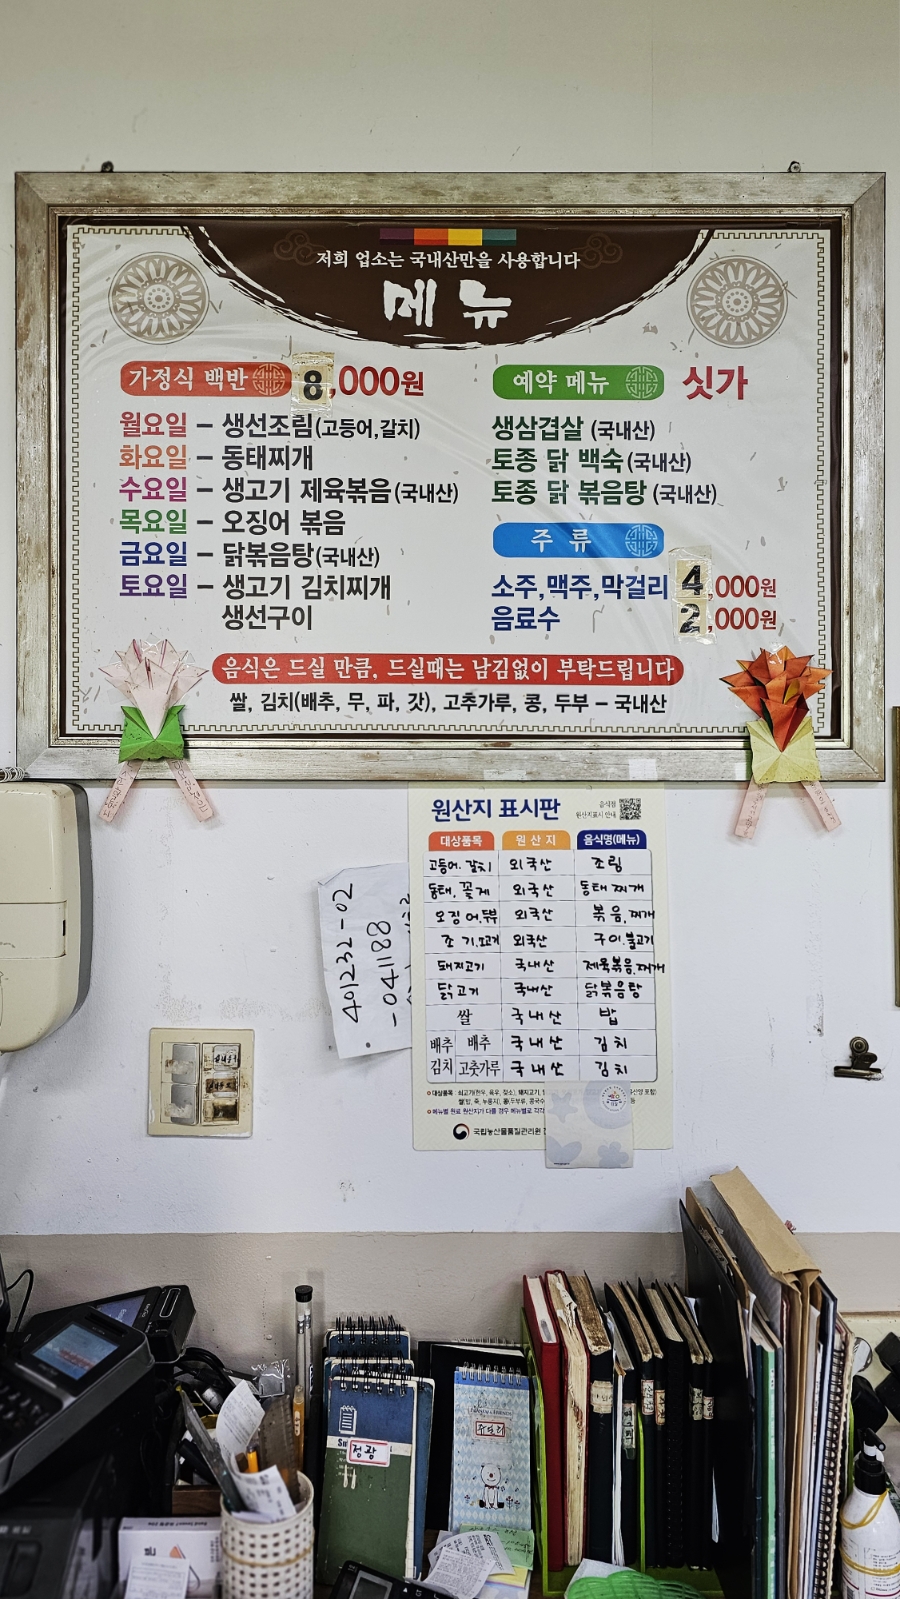 저희 업소는 국내산만을 사용합니다
메뉴
가정식 백반 8,000원
월요일 – 생선조림(고등어,갈치)
화요일 – 동태찌개
수요일 – 생고기 제육볶음(국내산)
목요일 – 오징어 볶음
금요일 – 닭볶음탕(국내산)
토요일 – 생고기 김치찌개
생선구이
예약 메뉴 싯가
생삼겹살 (국내산)
토종 닭 백숙(국내산)
토종 닭 볶음탕 (국내산)
주 류
소주,맥주,막걸리 4,000원
음료수 2,000원
음식은 드실 만큼, 드실때는 남김없이 부탁드립니다
쌀, 김치(배추, 무, 파, 갓), 고추가루, 콩, 두부 – 국내산
원산지 표시판
음식점
원산지표시 안내
대상품목 원산지 음식명(메뉴)
고등어.갈치 외국산 조림
동태,꽃게 외국산 동태찌개
오징어,두부 외국산 볶음,찌개
조기, 외국산 구이.불고기
돼지고기 국내산 제육볶음.찌개
닭고기 국내산 닭볶음탕
쌀 국내산 밥
배추김치 배추 국내산 김치
고춧가루 국내산 김치
국립농산물품질관리원
401232-02
-041188
정광